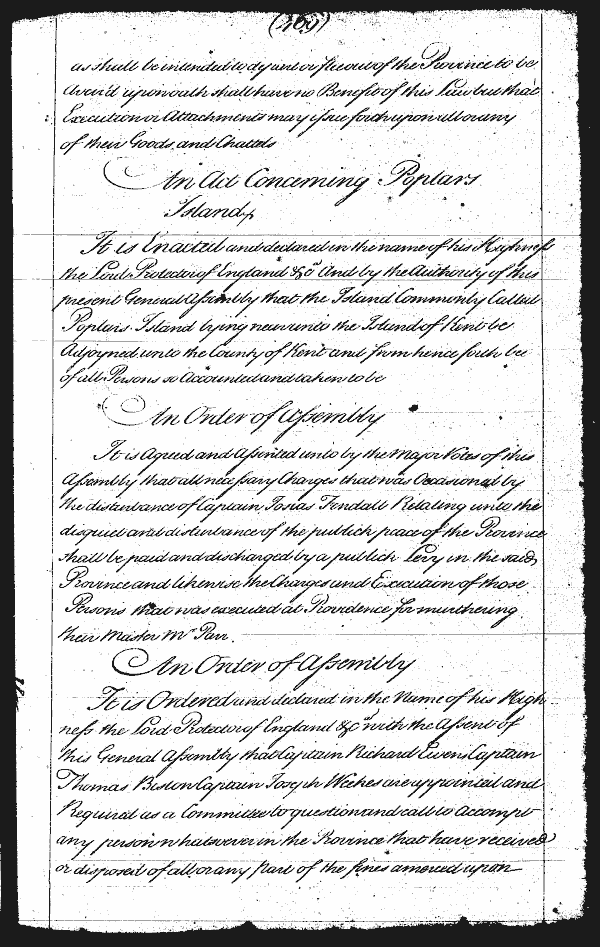 (169)
as shall be intended to dy and or flie out of the Province to be
Aver'd upon oath shall have no Benefit of this Law but that
Execution or Attachments may issue forth upon all or any
of their Goods and Chattels
An Act Concerning Poplars
Island
It is Enacted and declared in the name of his Highness
the Lord Protector of England &ca And by the Authority of this
present General Assembly that the Island Commonly Called
Poplars Island lying near unto the Island of Kent be
Adjoyned unto the County of Kent and from hence forth be
of all Persons so Accounted and taken to be
An Order of Assembly
It is Agreed and Assented unto by the Major Votes of this
Assembly that all necessary Charges that was Occasioned by
the disturbance of Captain Josias Fendall Relating unto the
disquiet and disturbance of the publick peace of the Province
shall be paid and discharged by a publick Levy in the said
Province and likewise the Charges and Execution of those
Persons that was executed at Providence for murthering
their Master Mr Parr.
An Order of Assembly
It is Ordered and declared in the Name of his High-
ness the Lord Protector of England &ca with the Assent of
this General Assembly that Captain Richard Ewens Captain
Thomas Beston Captain Joseph Weekes are appointed and
Required as a Committee to question and call to Accompt
any person whatsoever in the Province that have received
or disposed of all or any part of the fines amerced upon